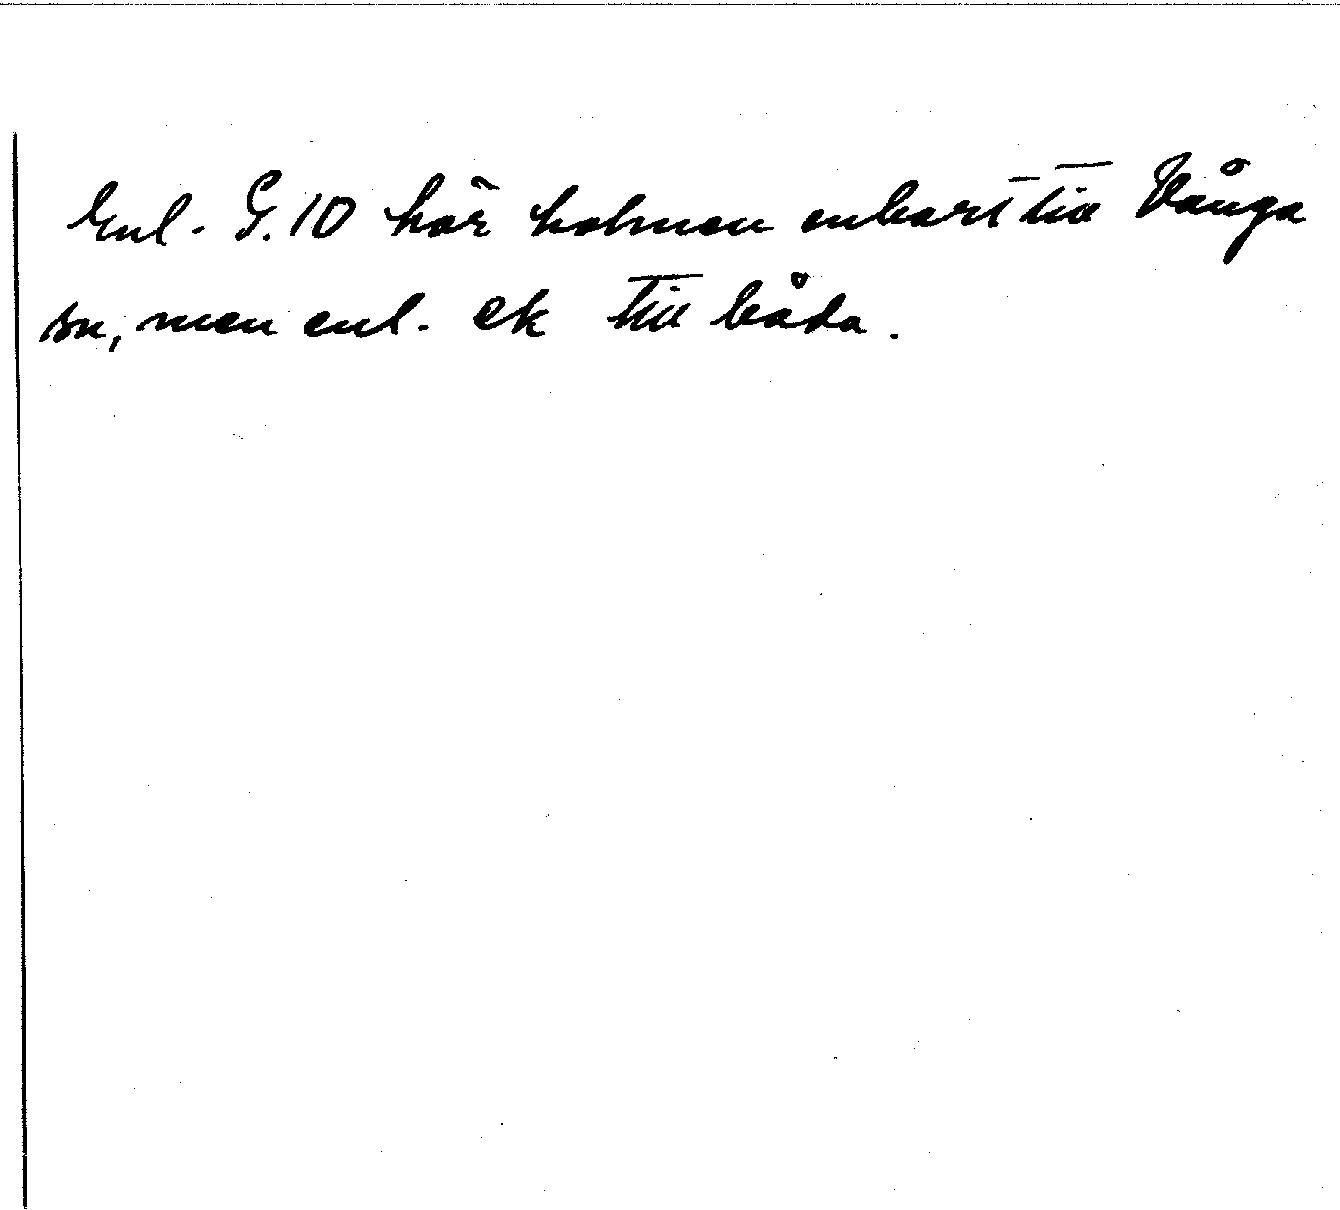 Enl. G.10 hör holmen enbart till Vånga
sn, men enl. ek till båda.